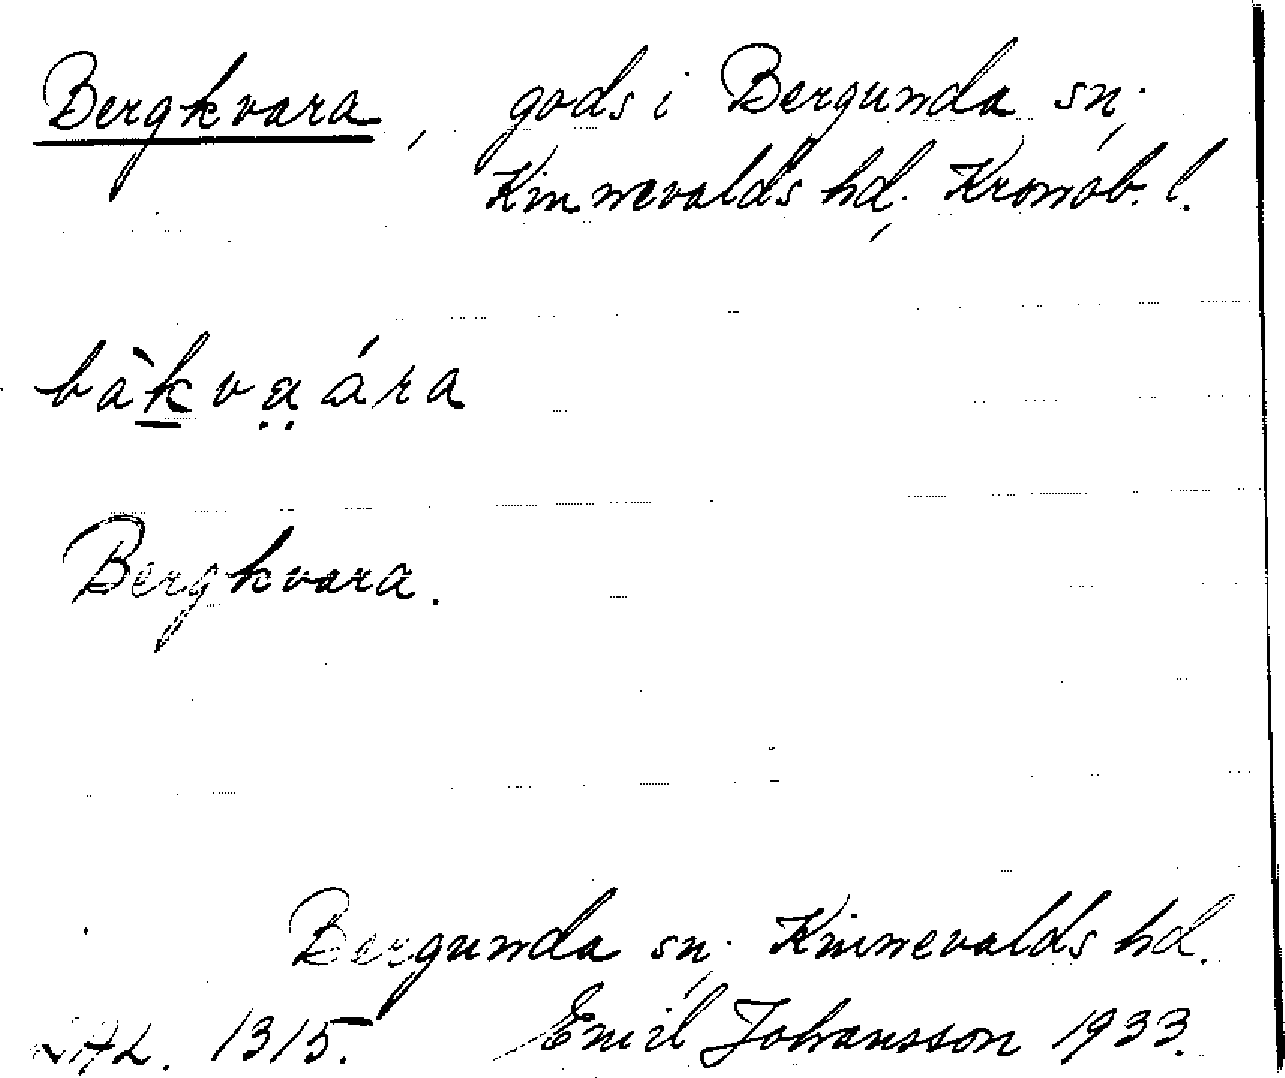 Bergkvara, gods i Bergunda sn;
Kinnevalds hd, Kronob. l.
bàkva̤ára
Bergkvara.
Bergunda sn; Kinnevalds hd.
LAL. 1315. Emil Johansson 1933.